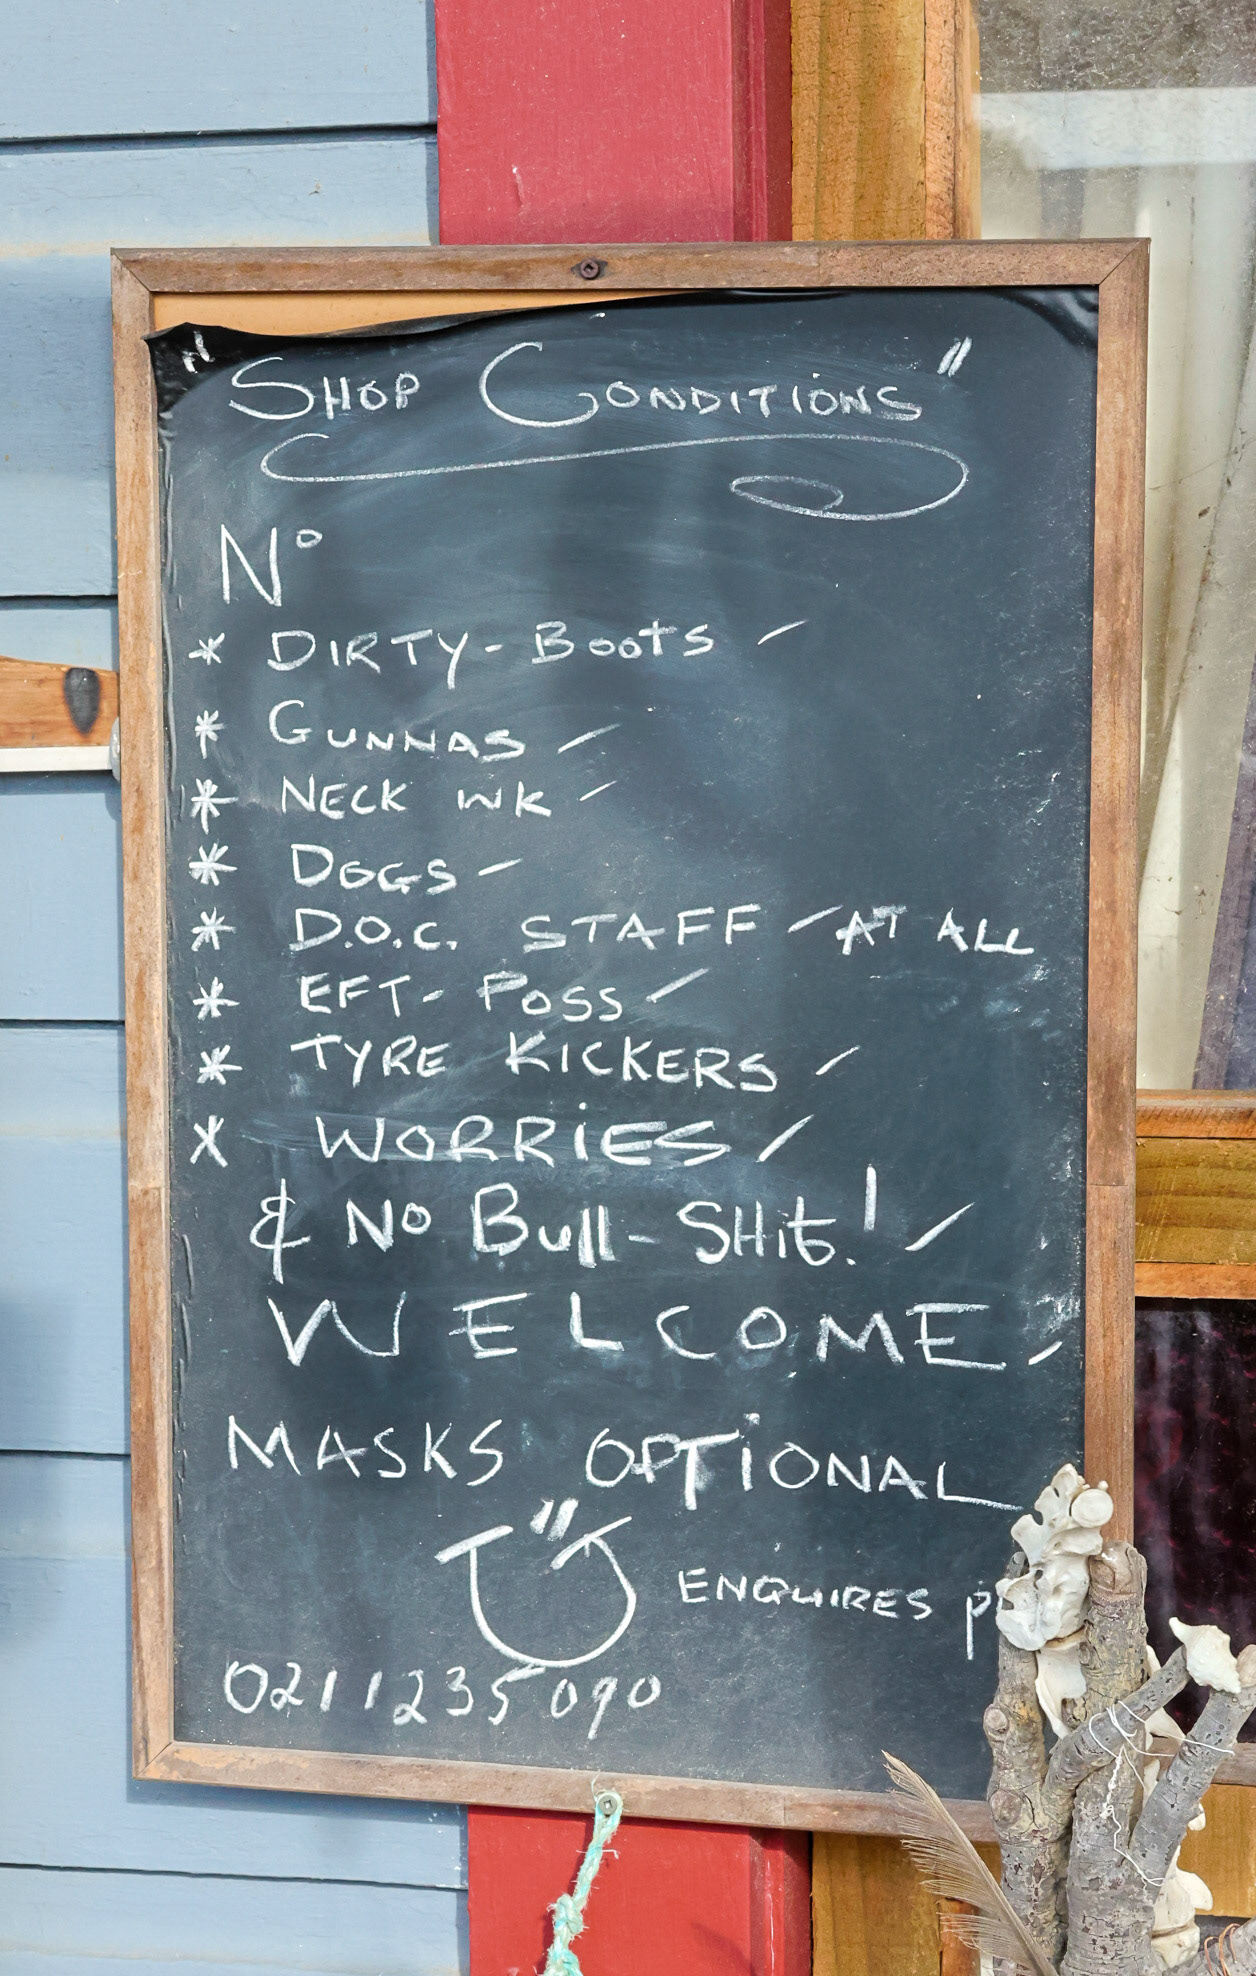 "SHOP CONDITIONS"
No
* DIRTY-BOOTS
* GUNNAS
* NECK WK
* DOGS
* D.O.C. STAFF AT ALL
* EFT-POSS
* TYRE KICKERS
X WORRIES
& No Bull-SHit!
WELCOME
MASKS OPTIONAL
ENQUIRES
0211235090